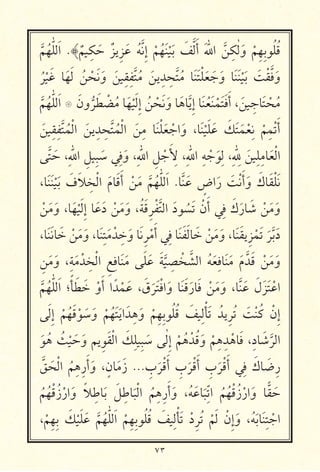 قُلُوبِهِمْ وَلَٰكِنَّ اللهَ أَلَّفَ بَيْنَهُمْ إِنَّهُ عَزِيزٌ حَكِيمٌ﴾. اَللّٰهُمَّ
وَفَّقْتَ بَيْنَنَا وَجَعَلْتَنَا مُتَّحِدِينَ مُتَّفِقِينَ وَنَحْنُ لَهَا غَيْرُ
مُحْتَاجِينَ، أَفَتَمْنَعُنَا إِيَّاهَا وَنَحْنُ إِلَيْهَا مُضْطَرُّونَ ۞ اَللّٰهُمَّ
أَتْمِمْ نِعْمَتَكَ عَلَيْنَا، وَاجْعَلْنَا مِنَ الْمُتَّحِدِينَ الْمُتَّفِقِينَ
الْعَامِلِينَ لِلّٰهِ، لِوَجْهِ اللهِ، لِأَجْلِ اللهِ، وَفِي سَبِيلِ اللهِ، حَتَّى
نَلْقَاكَ وَأَنْتَ رَاضٍ عَنَّا. اَللّٰهُمَّ مَنْ أَقَامَ الْخِلَافَ بَيْنَنَا،
وَمَنْ شَارَكَ فِي أَنْ تَسُودَ التَّفْرِقَةُ، وَمَنْ دَعَا إِلَيْهَا، وَمَنْ
دَبَّرَ تَمْزِيقَنَا، وَمَنْ خَالَفَنَا فِي أَمْرِنَا وَخِدْمَتِنَا، وَمَنْ خَانَنَا
وَمَنْ قَدَّمَ مَنَافِعَهُ الشَّخْصِيَّةَ عَلَى مَنَافِعِ الْخِدْمَةِ، وَمَنِ
اعْتَزَلَ عَنَّا، وَمَنْ فَارَقَنَا وَافْتَرَقَ، عَمْدًا أَوْ خَطَأً؛ اَللّٰهُمَّ
إِنْ كُنْتَ تُرِيدُ تَأْلِيفَ قُلُوبِهِمْ وَهِدَايَتَهُمْ وَسَوْقَهُمْ إِلَى
الرَّشَادِ، فَاهْدِهِمْ وَقُدْهُمْ إِلَىٰ سَبِيلِكَ الْقَوِيمِ وَحَيْثُ هُوَ
رِضَاكَ فِي أَقْرَبِ أَقْرَبِ أَقْرَبِ... زَمَانٍ، وَأَرِهِمُ الْحَقَّ
حَقًّا وَارْزُقْهُمُ اتِّبَاعَهُ، وَأَرِهِمُ الْبَاطِلَ بَاطِلًا وَارْزُقْهُمُ
اجْتِنَابَهُ، وَإِنْ لَمْ تُرِدْ تَأْلِيفَ قُلُوبِهِمْ اَللّٰهُمَّ عَلَيْكَ بِهِمْ،
٧٣